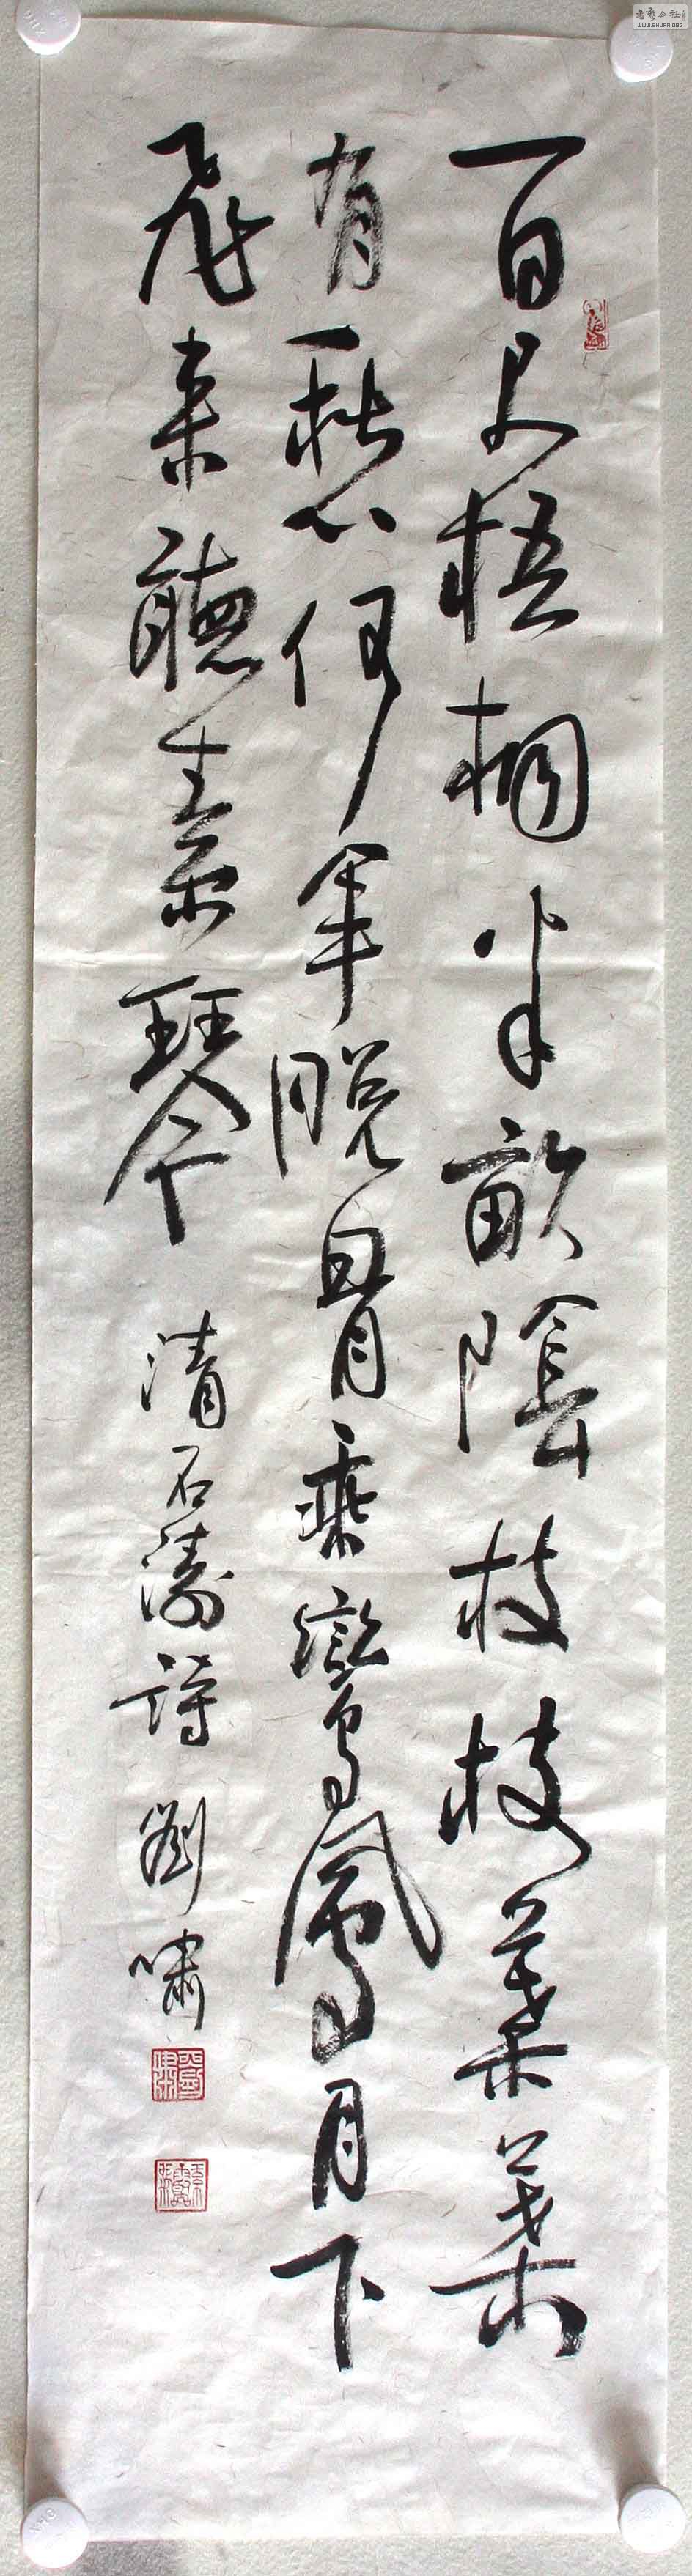 百尺梧桐半畝陰枝枝葉葉
有愁何年脫骨乘鸞鳳月下
飛來聽素琴 清石濤詩 劉嘯
WWW.SHUFA.ORG